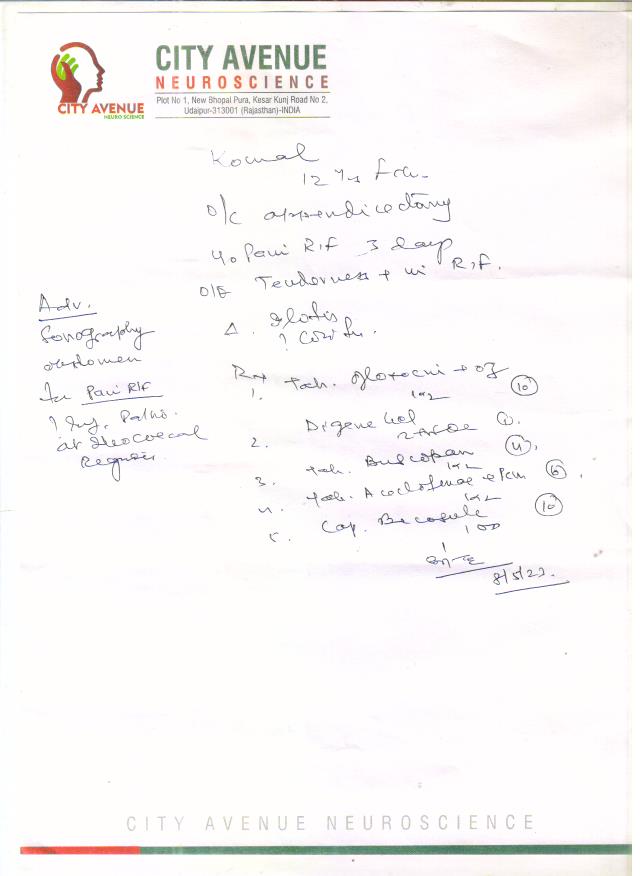 CITY AVENUE
NEURO SCIENCE
CITY AVENUE
NEUROSCIENCE
Plot No 1, New Bhopal Pura, Kesar Kunj Road No 2,
Udaipur-313001 (Rajasthan)-INDIA
Komal
12 Yrs
o/c appendicectomy
Pain RIF 3 days
O/E Tenderness + in RIF.
Δ.
Adv.
Sonography
abdomen
for Pain RIF
? Patho.
at Ileocoecal
Region.
Rx
1. tab. ofloxacin + oz 10
1x2
2. Digene Gel
2 1
3. tab. Buscopan
1x2
4. tab. Aceclofenac + Pcm 6
1x2
5. Cap. Becosule 10
1 OD
CITY AVENUE NEUROSCIENCE